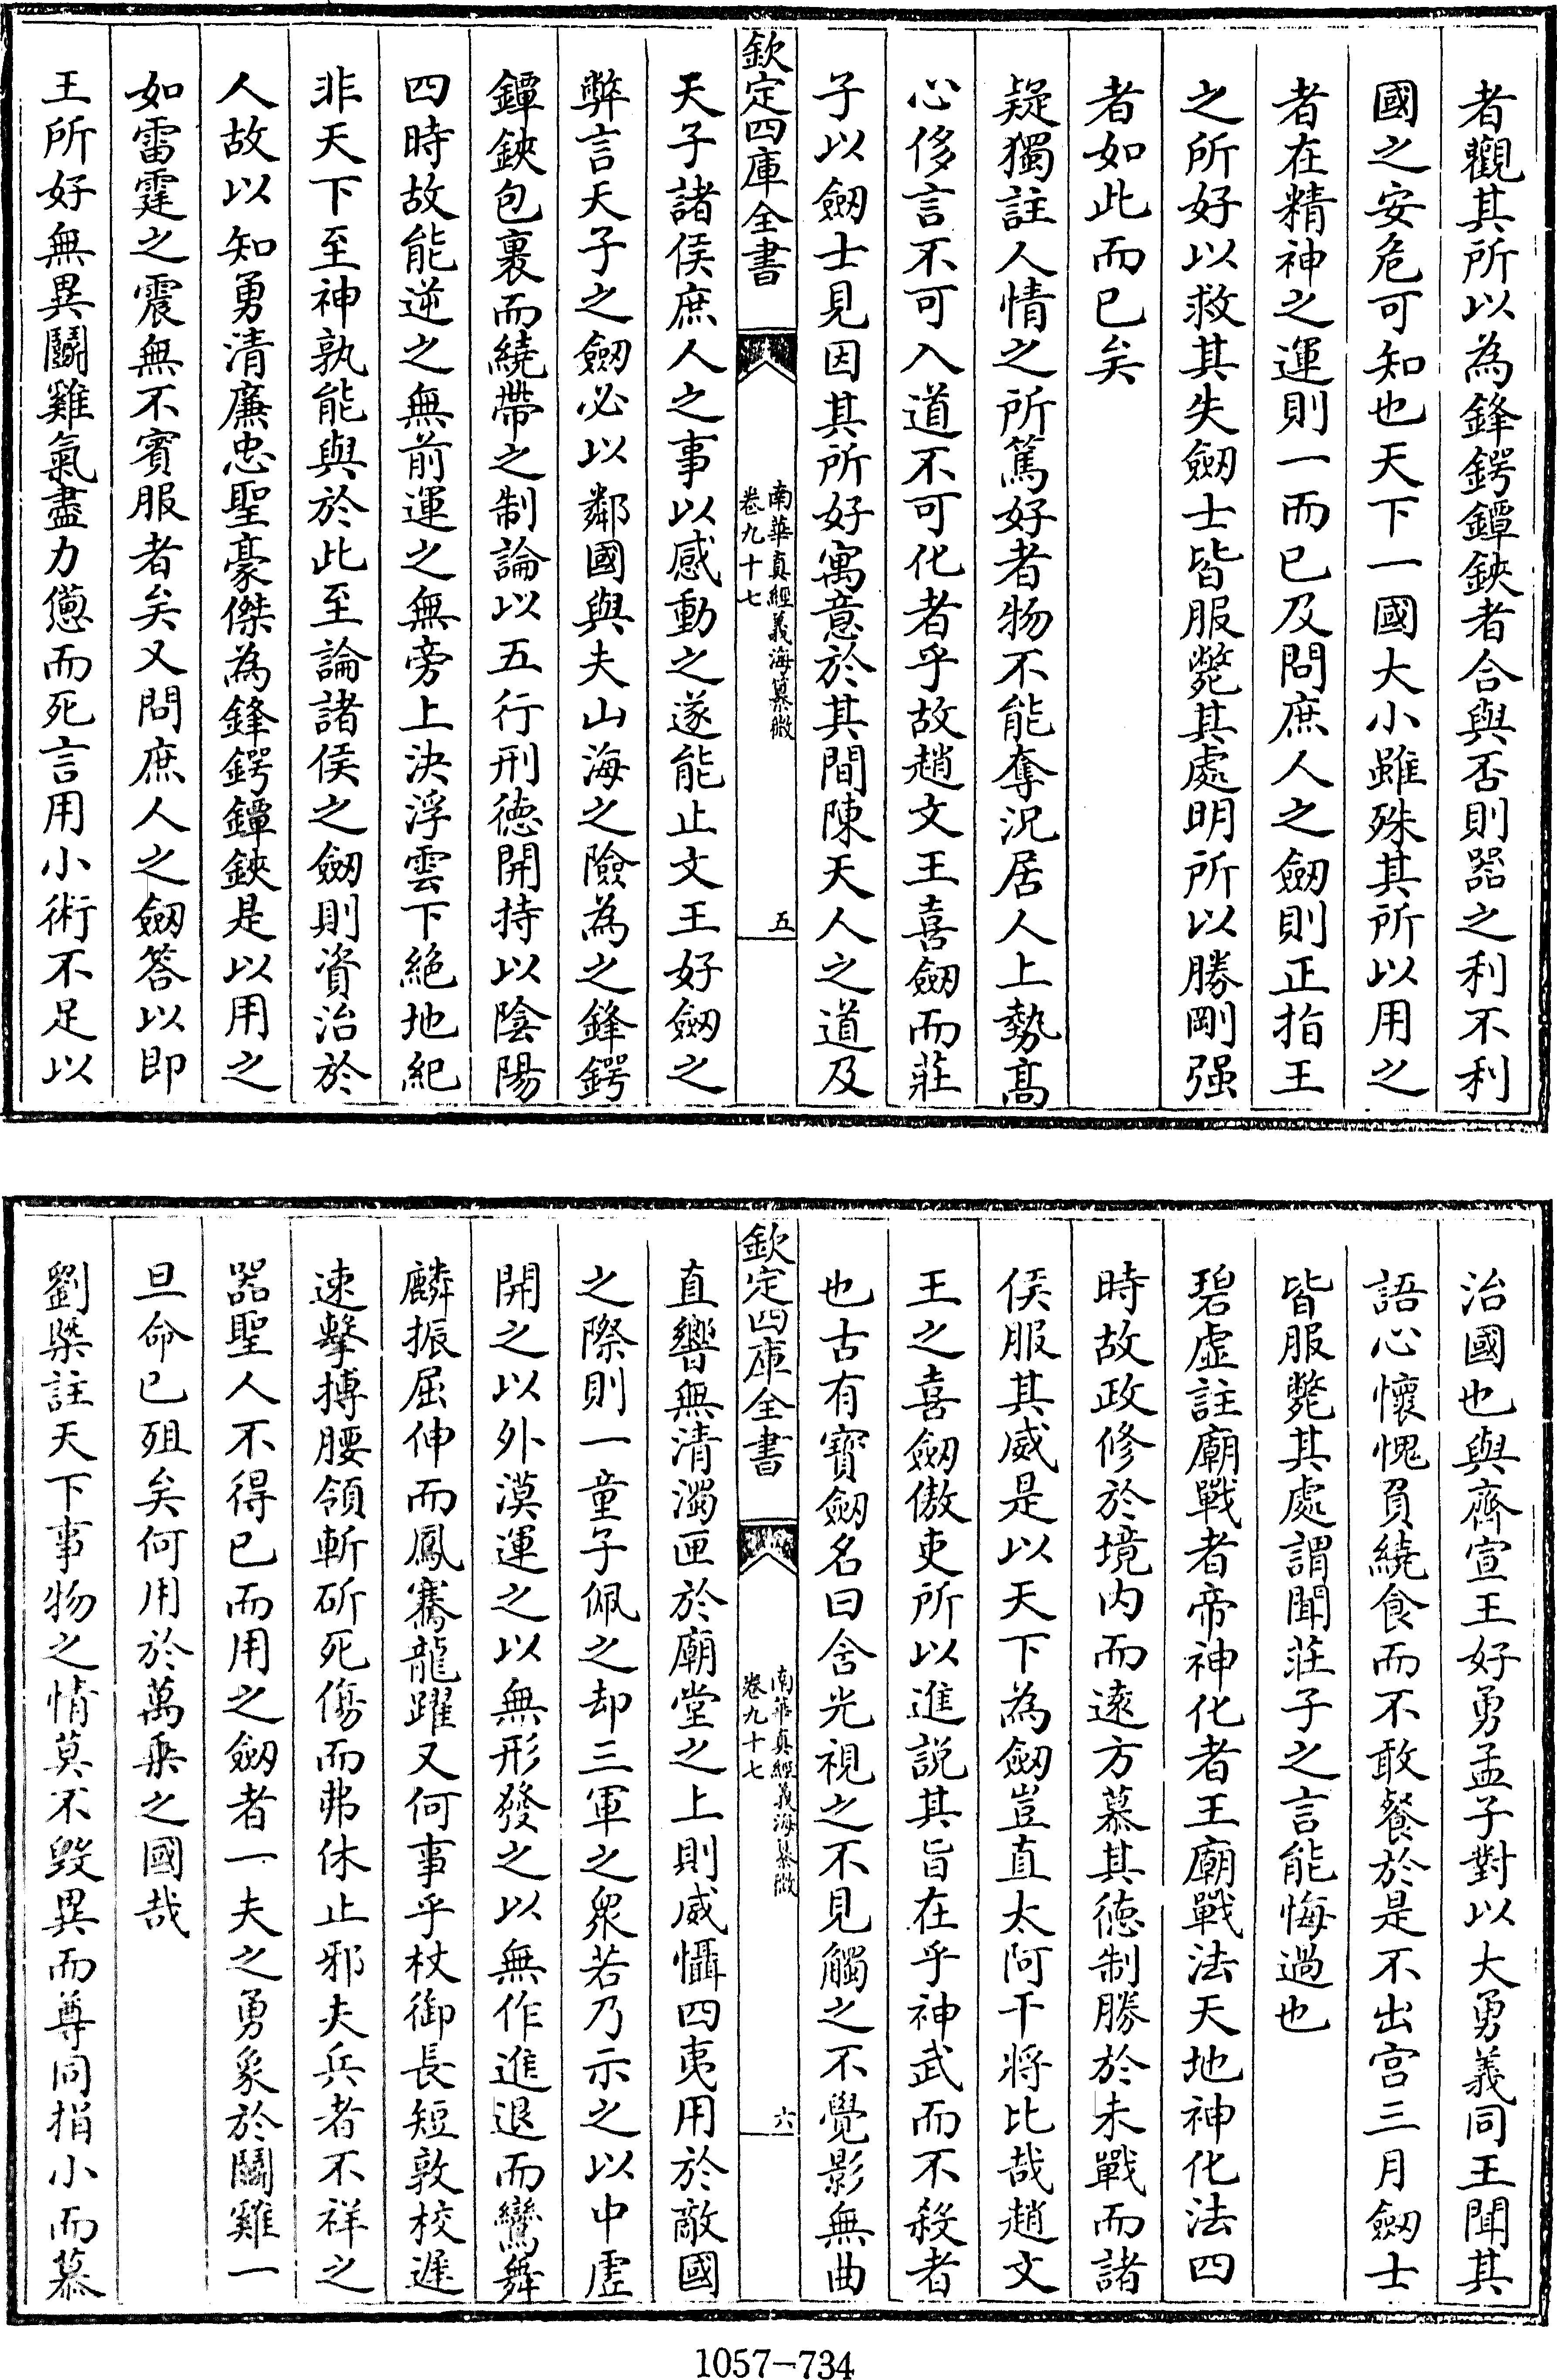 者觀其所以為鋒鍔鐔鋏者合與否則器之利不利
國之安危可知也天下一國大小雖殊其所以用之
者在精神之運則一而已及問庶人之劒則正指王
之所好以救其失劒士皆服斃其處明所以勝剛强
者如此而已矣
疑獨註人情之所篤好者物不能奪況居人上勢髙
心侈言不可入道不可化者乎故趙文王喜劒而莊
子以劒士見因其所好寓意於其間陳天人之道及
欽定四庫全書
南華真經義海纂微
卷九十七
五
天子諸侯庶人之事以感動之遂能止文王好劒之
弊言天子之劒必以鄰國與夫山海之險為之鋒鍔
鐔鋏包裹而繞帶之制論以五行刑德開持以陰陽
四時故能逆之無前運之無旁上決浮雲下絶地紀
非天下至神孰能與於此至論諸侯之劒則資治於
人故以知勇清廉忠聖豪傑為鋒鍔鐔鋏是以用之
如雷霆之震無不賓服者矣又問庶人之劒答以即
王所好無異鬭雞氣盡力憊而死言用小術不足以
治國也與齊宣王好勇孟子對以大勇義同王聞其
語心懷愧負繞食而不敢餐於是不出宫三月劒士
皆服斃其處謂聞莊子之言能悔過也
碧虛註廟戰者帝神化者王廟戰法天地神化法四
時故政修於境内而逺方慕其德制勝於未戰而諸
侯服其威是以天下為劒豈直太阿干將比哉趙文
王之喜劒傲吏所以進説其旨在乎神武而不殺者
也古有寶劒名曰含光視之不見觸之不覺影無曲
欽定四庫全書
南華真經義海纂微
卷九十七
六
直響無清濁匣於廟堂之上則威懾四夷用於敵國
之際則一童子佩之却三軍之衆若乃示之以中虛
開之以外漠運之以無形發之以無作進退而鸞舞
麟振屈伸而鳳騫龍躍又何事乎杖御長短敦校遲
速擊搏腰領斬斫死傷而弗休止邪夫兵者不祥之
器聖人不得已而用之劒者一夫之勇象於鬭雞一
旦命已殂矣何用於萬乗之國哉
劉槩註天下事物之情莫不毀異而尊同捐小而慕
1057-734